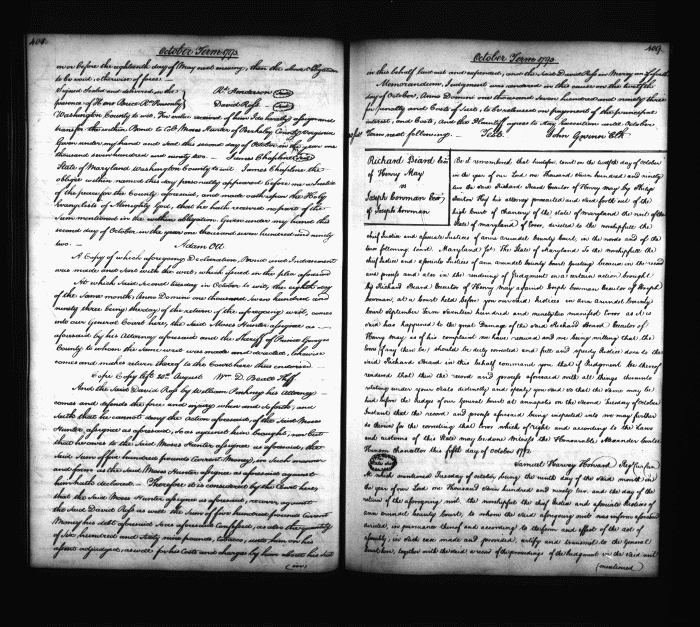 408
October Term 1793
on or before the eighteenth day of May next ensuing, then the above Obligation
to be void, otherwise of force. —
Signed Sealed and delivered in the
presence of
Rd. Anderson (Seal)
David Ross (Seal)
Washington County to wit. For value received of him I do hereby assign and
transfer the within Bond to Moses Hunter of Berkeley County Virginia
Given under my hand and Seal this second day of October in the year one
thousand seven hundred and ninety two — James Chapline (Seal)
State of Maryland Washington County to wit James Chapline the
obligee within named this day personally appeared before me
of the peace for the County aforesaid, and made oath upon the Holy
Evangelists of Almighty God, that he hath received no part of the
Sum mentioned in the within obligation. Given under my hand this
second day of October in the year one thousand seven hundred and ninety
two —
A Copy of which aforegoing Declaration, Bond and Indorsement
was made and sent with the writ, which filed in the plea aforesaid
At which Said Second tuesday in October to wit, the eighth day
of the Same month, Anno Domini one thousand seven hundred and
ninety three being the day of the return of the aforegoing writ, comes
into our General Court here, the Said Moses Hunter assignee as
aforesaid by his Attorney aforesaid and the Sheriff of Prince Georges
County to whom the Same writ was made and directed, likewise
comes and makes return thereof to the Court here thus endorsed —
Cepi Copy left 20th August Wm. D. Beall Shff
And the Said David Ross by William Pinkney his attorney
comes and defends the force and injury when and so forth, and
Saith that he cannot deny the action aforesaid, of the Said Moses
Hunter assignee as aforesaid, so as against him brought, nor but
that he owes to the Said Moses Hunter assignee as aforesaid, the
Said Sum of five hundred pounds Current Money, in Such manner
and form as the Said Moses Hunter assignee as aforesaid against
him hath declared — Therefore it is considered by the Court here,
that the Said Moses Hunter assignee as aforesaid, recover against
the Said David Ross as well the Sum of five hundred pounds Current
Money his debt aforesaid so as aforesaid Confessed, as also the quantity
of Six hundred and Sixty nine pounds, tobacco, unto him on his
assent adjudged, as well for his Costs and charges by him about his Suit
(in)
409
October Term 1793
in this behalf laid out and expended, and the Said David Ross in Mercy and so forth
Memorandum, Judgment was rendered in this cause on the twelfth
day of October, Anno Domini one thousand seven hundred and ninety three
for penalty and Costs of Suit, to be released on payment of the principal
interest, and Costs, and the Plaintiff agrees to stay Execution until October
Term next following. — Test. John Gwinn Clk.
Richard Beard Exr
of Henry May
vs
Joseph Cowman Exr
of Joseph Cowman
Be it remembered that heretofore, to wit on the twelfth day of October
in the year of our Lord one thousand seven hundred and ninety
two the Said Richard Beard Executor of Henry May by Philip
Barton Key his attorney prosecuted and sued forth out of the
high Court of Chancery of the State of Maryland the writ of the
State of maryland of Error, directed to the
chief Justice and associate Justices of ann arundel County Court, in the words and of the
tenor following to wit, Maryland Sct. The State of Maryland To the
chief Justice and associate Justices of ann arundel County Court Greeting because in the record
and process and also in the rendering of Judgment on a certain action brought
by Richard Beard Executor of Henry May against Joseph Cowman Executor of Joseph
Cowman, at a Court held before you our said Justices in ann arundel County
September Term Seventeen hundred and ninety two manifest Error as it is
said has happened to the great Damage of the said Richard Beard Executor of
Henry May as of his complaint we have received and we being willing that the
Error (if any there be) should be duly corrected and full and speedy Justice done to the
said Richard Beard in this behalf command you that if Judgment be thereof
rendered that then the record and process aforesaid with all things thereunto
relating under your Seals distinctly and openly you send so that the same may be
had before the Judges of our General Court at annapolis on the second Tuesday of October
Instant that the record and process aforesaid being inspected unto we may further
to devise for the correcting that Error which according to right and according to the Laws
and Customs of this State may be done Witness the Honourable Alexander Contee
Hanson Chancellor this fifth day of October 1792.
Samuel Harvey Howard Reg Cur Can
At which mentioned Tuesday of October being the ninth day of the said month in
the year of our Lord one Thousand seven hundred and ninety two, and the day of the
return of the aforegoing writ, the chief Justice and associate Justices of
ann arundel County Court, to whom the said aforegoing writ was in form aforesaid
directed, in pursuance thereof and according to the form and effect of the act of
assembly, in such case made and provided, certify and transmit to the General
Court here, together with the said a record of the proceedings of the Judgment in the said writ
(mentioned)